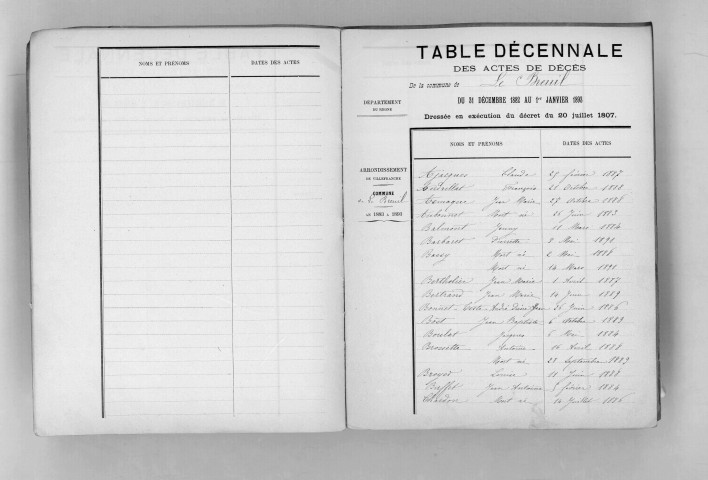 NOMS ET PRÉNOMS DATES DES ACTES
TABLE DÉCENNALE
DES ACTES DE DÉCÈS
De la commune de Le Breuil
DU 31 DÉCEMBRE 1882 AU 1er JANVIER 1893
Dressée en exécution du décret du 20 juillet 1807.
DÉPARTEMENT
DU RHONE
ARRONDISSEMENT
DE VILLEFRANCHE
COMMUNE
de Le Breuil
DE 1883 à 1893
NOMS ET PRÉNOMS DATES DES ACTES
Claude 27 février 1887
François 21 Octobre 1888
Jean Marie 27 Octobre 1886
Mort né 25 Juin 1883
Balmont Jenny 11 Mars 1884
Barbaret Pierrette 2 Mai 1891
Bassy Mort né 2 Mai 1888
Mort né 14 Mars 1891
Berthelier Jean Marie 1 Avril 1887
Bertrand Jean Marie 14 Juin 1889
Bonnet Coste André Juin 1886
Bost Jean Baptiste 6 Octobre 1883
Boulat Jacques 5 Mai 1884
Brossette Antoine 16 Avril 1888
Mort né 28 Septembre 1883
Broyer Louise 11 Juin 1888
Buffet Jean Antoine 5 février 1884
Chardon Mort né 14 Juillet 1886